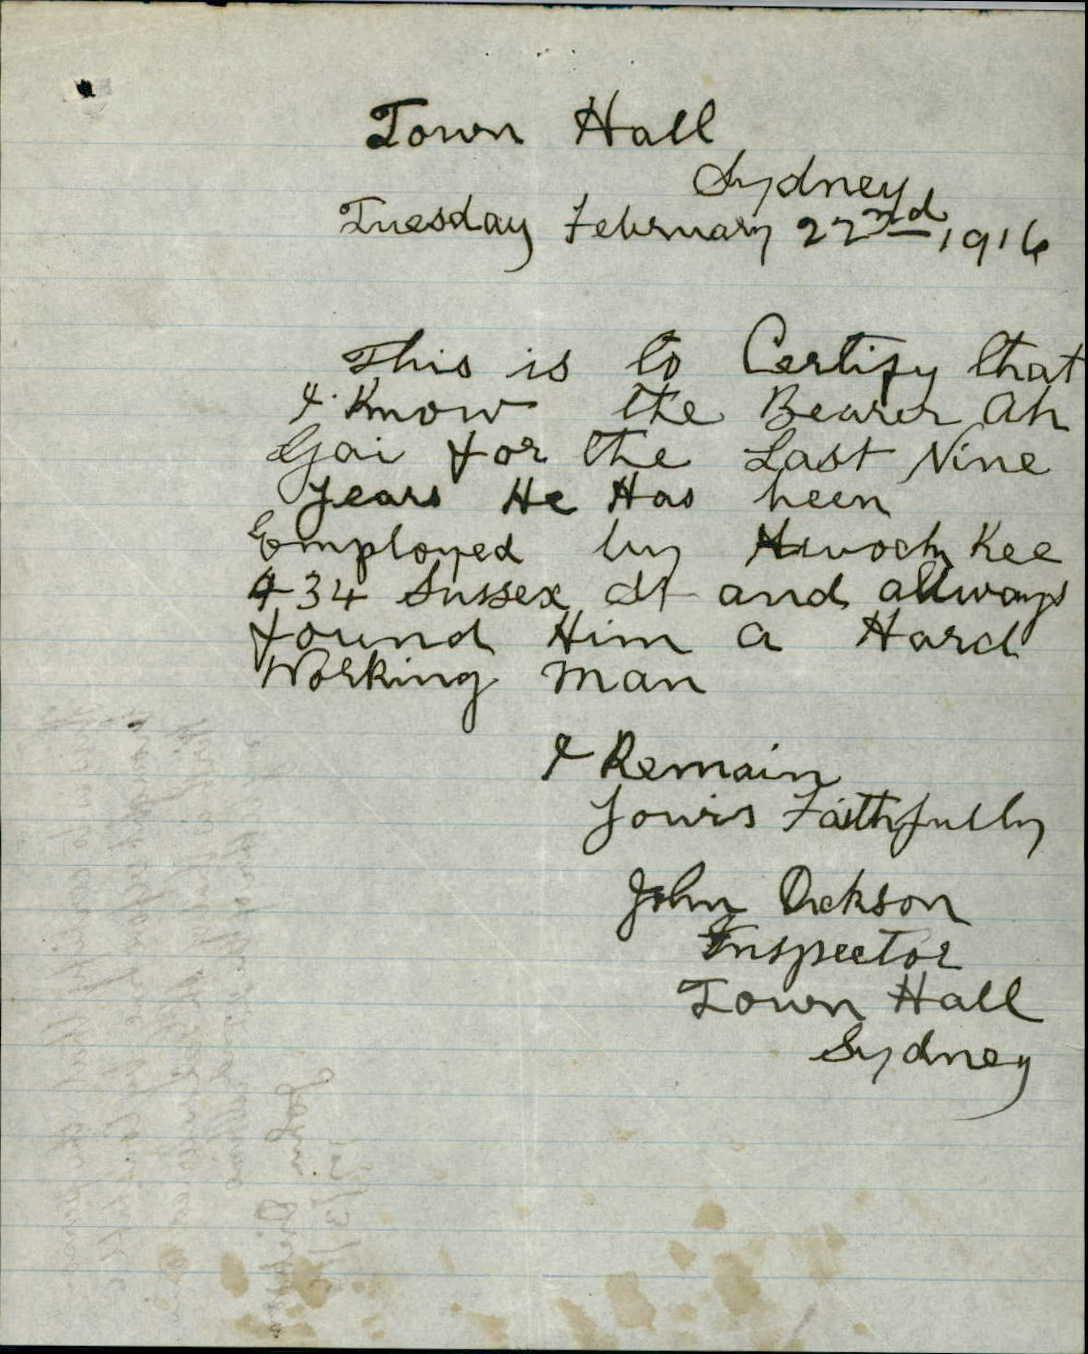 Town Hall
Sydney
Tuesday February 22nd, 1916
This is to Certify that
I Know the Bearer Ah
Gai for the Last Nine
years He Has been
Employed by Kee
434 Sussex St and allways
found Him a Hard
Working Man
I Remain
Yours Faithfully
John Dickson
Inspector
Town Hall
Sydney